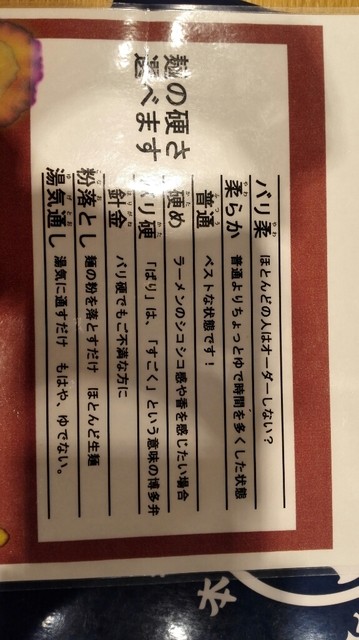 麺の硬さ
選べます
バリ柔 ほとんどの人はオーダーしない?
柔らか 普通よりちょっとゆで時間を多くした状態
普通 ベストな状態です!
硬め ラーメンのシコシコ感や香を感じたい場合
バリ硬 「ばり」は、「すごく」という意味の博多弁
針金 バリ硬でもご不満な方に
粉落とし 麺の粉を落とすだけ ほとんど生麺
湯気通し 湯気に通すだけ もはや、ゆでない。
本